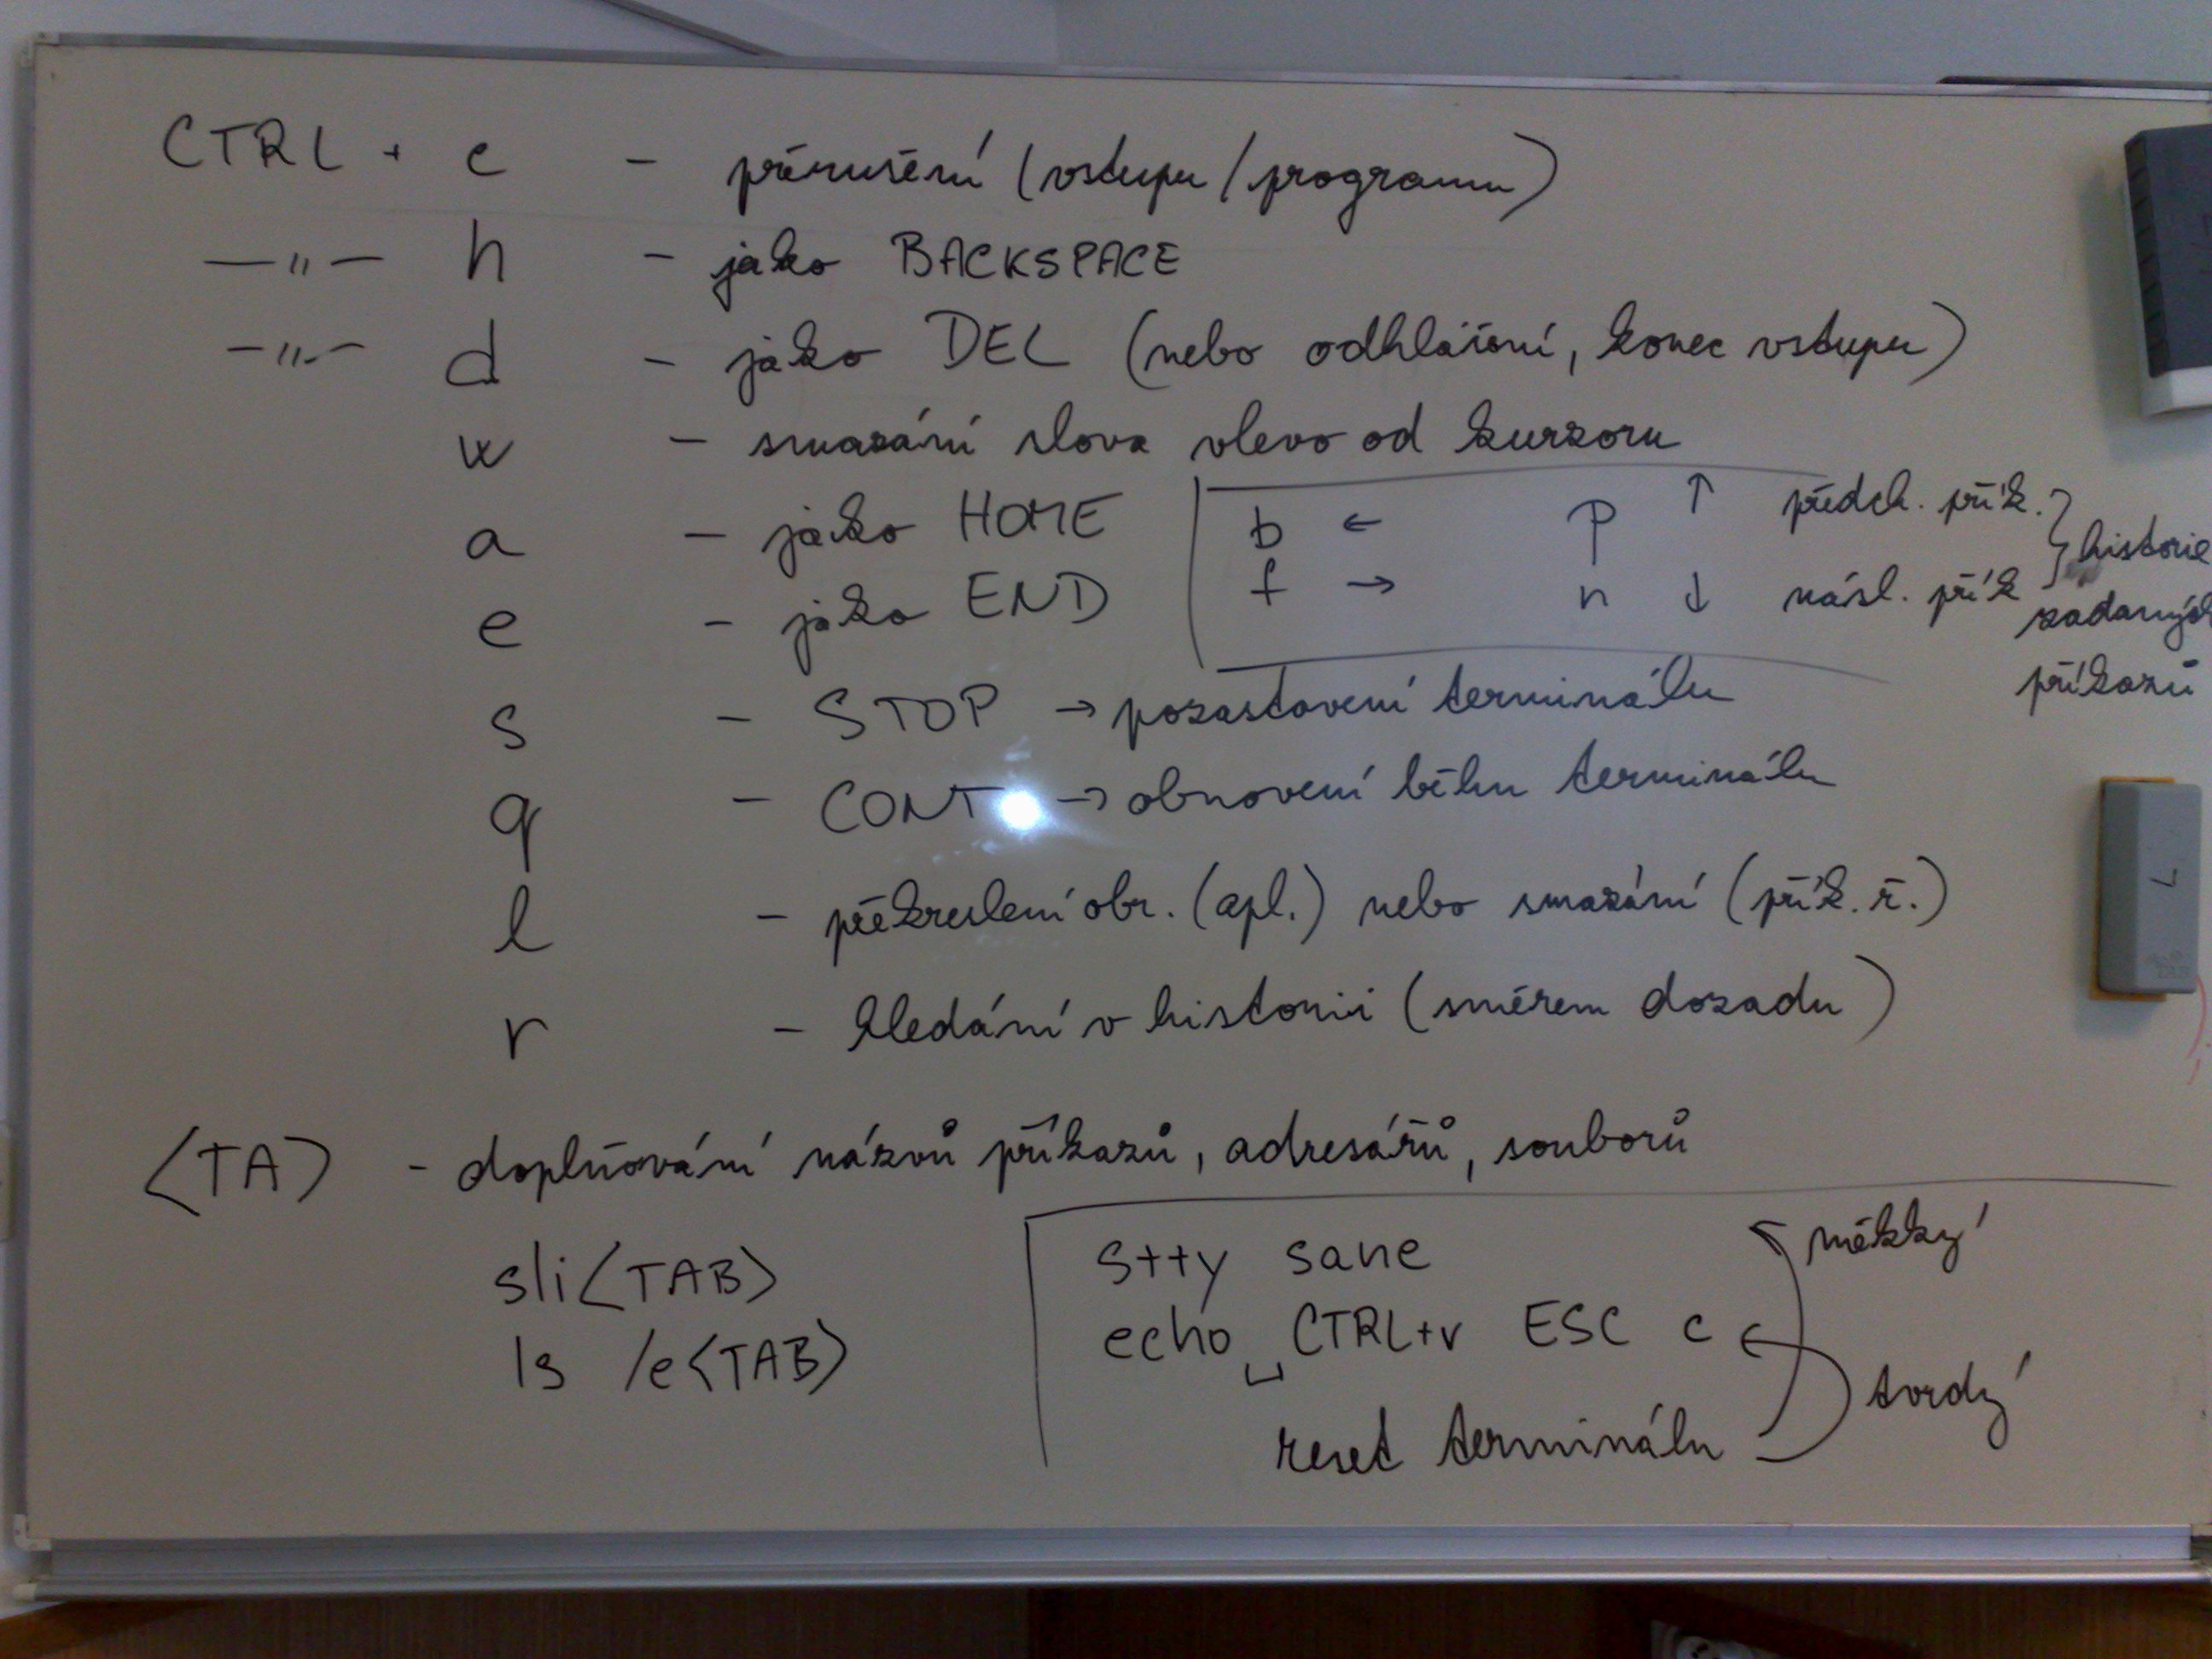 CTRL + c - přerušení (vstupu/programu)
—〃— h - jako BACKSPACE
—〃— d - jako DEL (nebo odhlášení, konec vstupu)
w - smazání slova vlevo od kurzoru
a - jako HOME
e - jako END
b ← p ↑ předch. přík.
f → n ↓ násl. přík
} historie
zadaných
příkazů
s - STOP → pozastavení terminálu
q - CONT → obnovení běhu terminálu
l - překreslení obr. (apl.) nebo smazání (přík. ř.)
r - hledání v historii (směrem dozadu)
<TA> - doplňování názvů příkazů, adresářů, souborů
sli<TAB>
ls /e<TAB>
stty sane
echo␣CTRL+v ESC c
reset terminálu
měkký
tvrdý
L